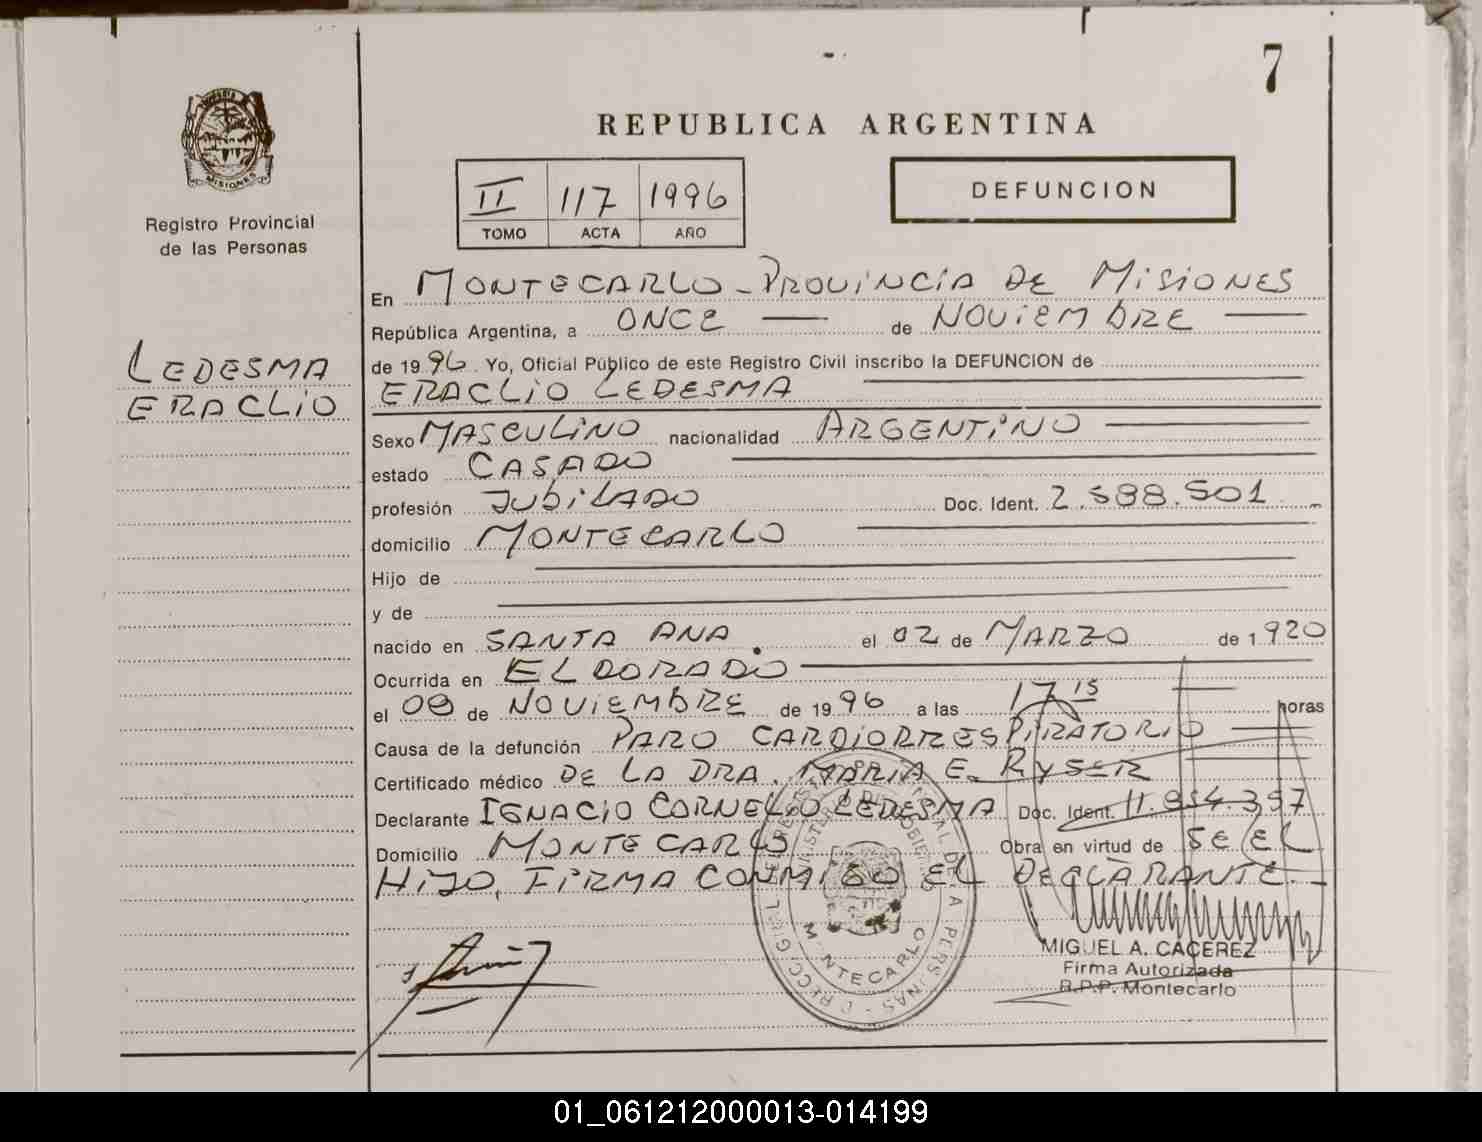 7
REPUBLICA ARGENTINA
MISIONES
Registro Provincial
de las Personas
II 117 1996
TOMO ACTA AÑO
DEFUNCION
LEDESMA
ERACLIO
En MONTECARLO - PROVINCIA DE MISIONES
República Argentina, a ONCE de NOVIEMBRE
de 1996. Yo, Oficial Público de este Registro Civil inscribo la DEFUNCION de
ERACLIO LEDESMA
Sexo MASCULINO nacionalidad ARGENTINO
estado CASADO
profesión JUBILADO Doc. Ident. 2.588.501
domicilio MONTECARLO
Hijo de
y de
nacido en SANTA ANA. el 02 de MARZO de 1.920
Ocurrida en ELDORADO
el 08 de NOVIEMBRE de 1996 a las 17 15 horas
Causa de la defunción PARO CARDIORRESPIRATORIO
Certificado médico DE LA DRA. MARIA E. RYSER
Declarante IGNACIO CORNELIO LEDESMA Doc. Ident. 11.954.357
Domicilio MONTECARLO Obra en virtud de SE EL
HIJO, FIRMA CONMIGO EL DECLARANTE.-
MONTECARLO
MIGUEL A. CACEREZ
Firma Autorizada
R.P.P. Montecarlo
01_061212000013-014199